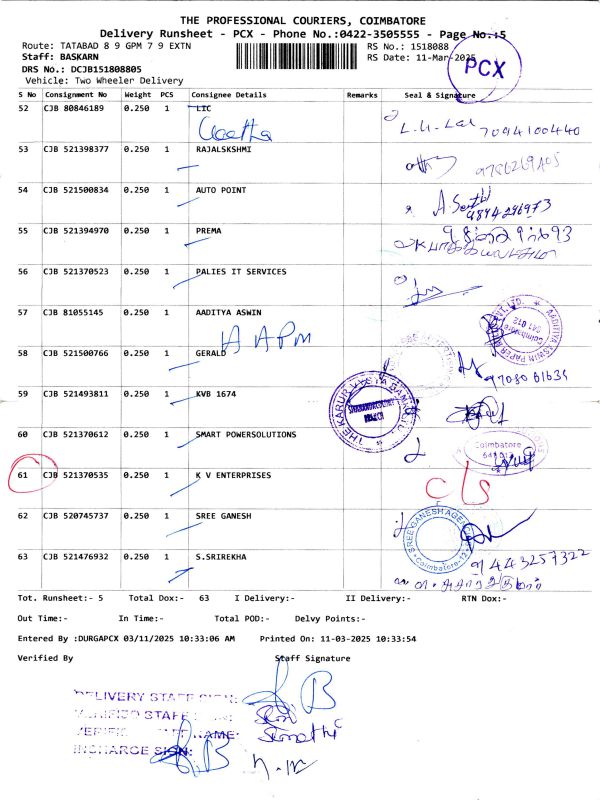 THE PROFESSIONAL COURIERS, COIMBATORE
Delivery Runsheet - PCX - Phone No.:0422-3505555 - Page No.:5
Route: TATABAD 8 9 GPM 7 9 EXTN
RS No.: 1518088
Staff: BASKARN
RS Date: 11-Mar-2025
PCX
DRS No.: DCJB151808805
Vehicle: Two Wheeler Delivery
S No Consignment No Weight PCS Consignee Details Remarks Seal & Signature
52 CJB 80846189 0.250 1 LIC
Geetha
7094100440
53 CJB 521398377 0.250 1 RAJALSKSHMI
54 CJB 521500834 0.250 1 AUTO POINT
9894296973
55 CJB 521394970 0.250 1 PREMA
56 CJB 521370523 0.250 1 PALIES IT SERVICES
57 CJB 81055145 0.250 1 AADITYA ASWIN
AAPM
AADITYA ASWIN PAPER
Coimbatore
641 012
58 CJB 521500766 0.250 1 GERALD
59 CJB 521493811 0.250 1 KVB 1674
THE KARUR VYSYA BANK LTD.
BRANCH
60 CJB 521370612 0.250 1 SMART POWERSOLUTIONS
Coimbatore
61 CJB 521370535 0.250 1 K V ENTERPRISES
C/S
62 CJB 520745737 0.250 1 SREE GANESH
SREE GANESH AGENCY
Coimbatore-12
63 CJB 521476932 0.250 1 S.SRIREKHA
9443257322
Tot. Runsheet:- 5 Total Dox:- 63 I Delivery:- II Delivery:- RTN Dox:-
Out Time:- In Time:- Total POD:- Delvy Points:-
Entered By :DURGAPCX 03/11/2025 10:33:06 AM Printed On: 11-03-2025 10:33:54
Verified By Staff Signature
DELIVERY STAFF SIGN:
VERIFIED STAFF SIGN:
VERIFIED STAFF NAME:
INCHARGE SIGN: